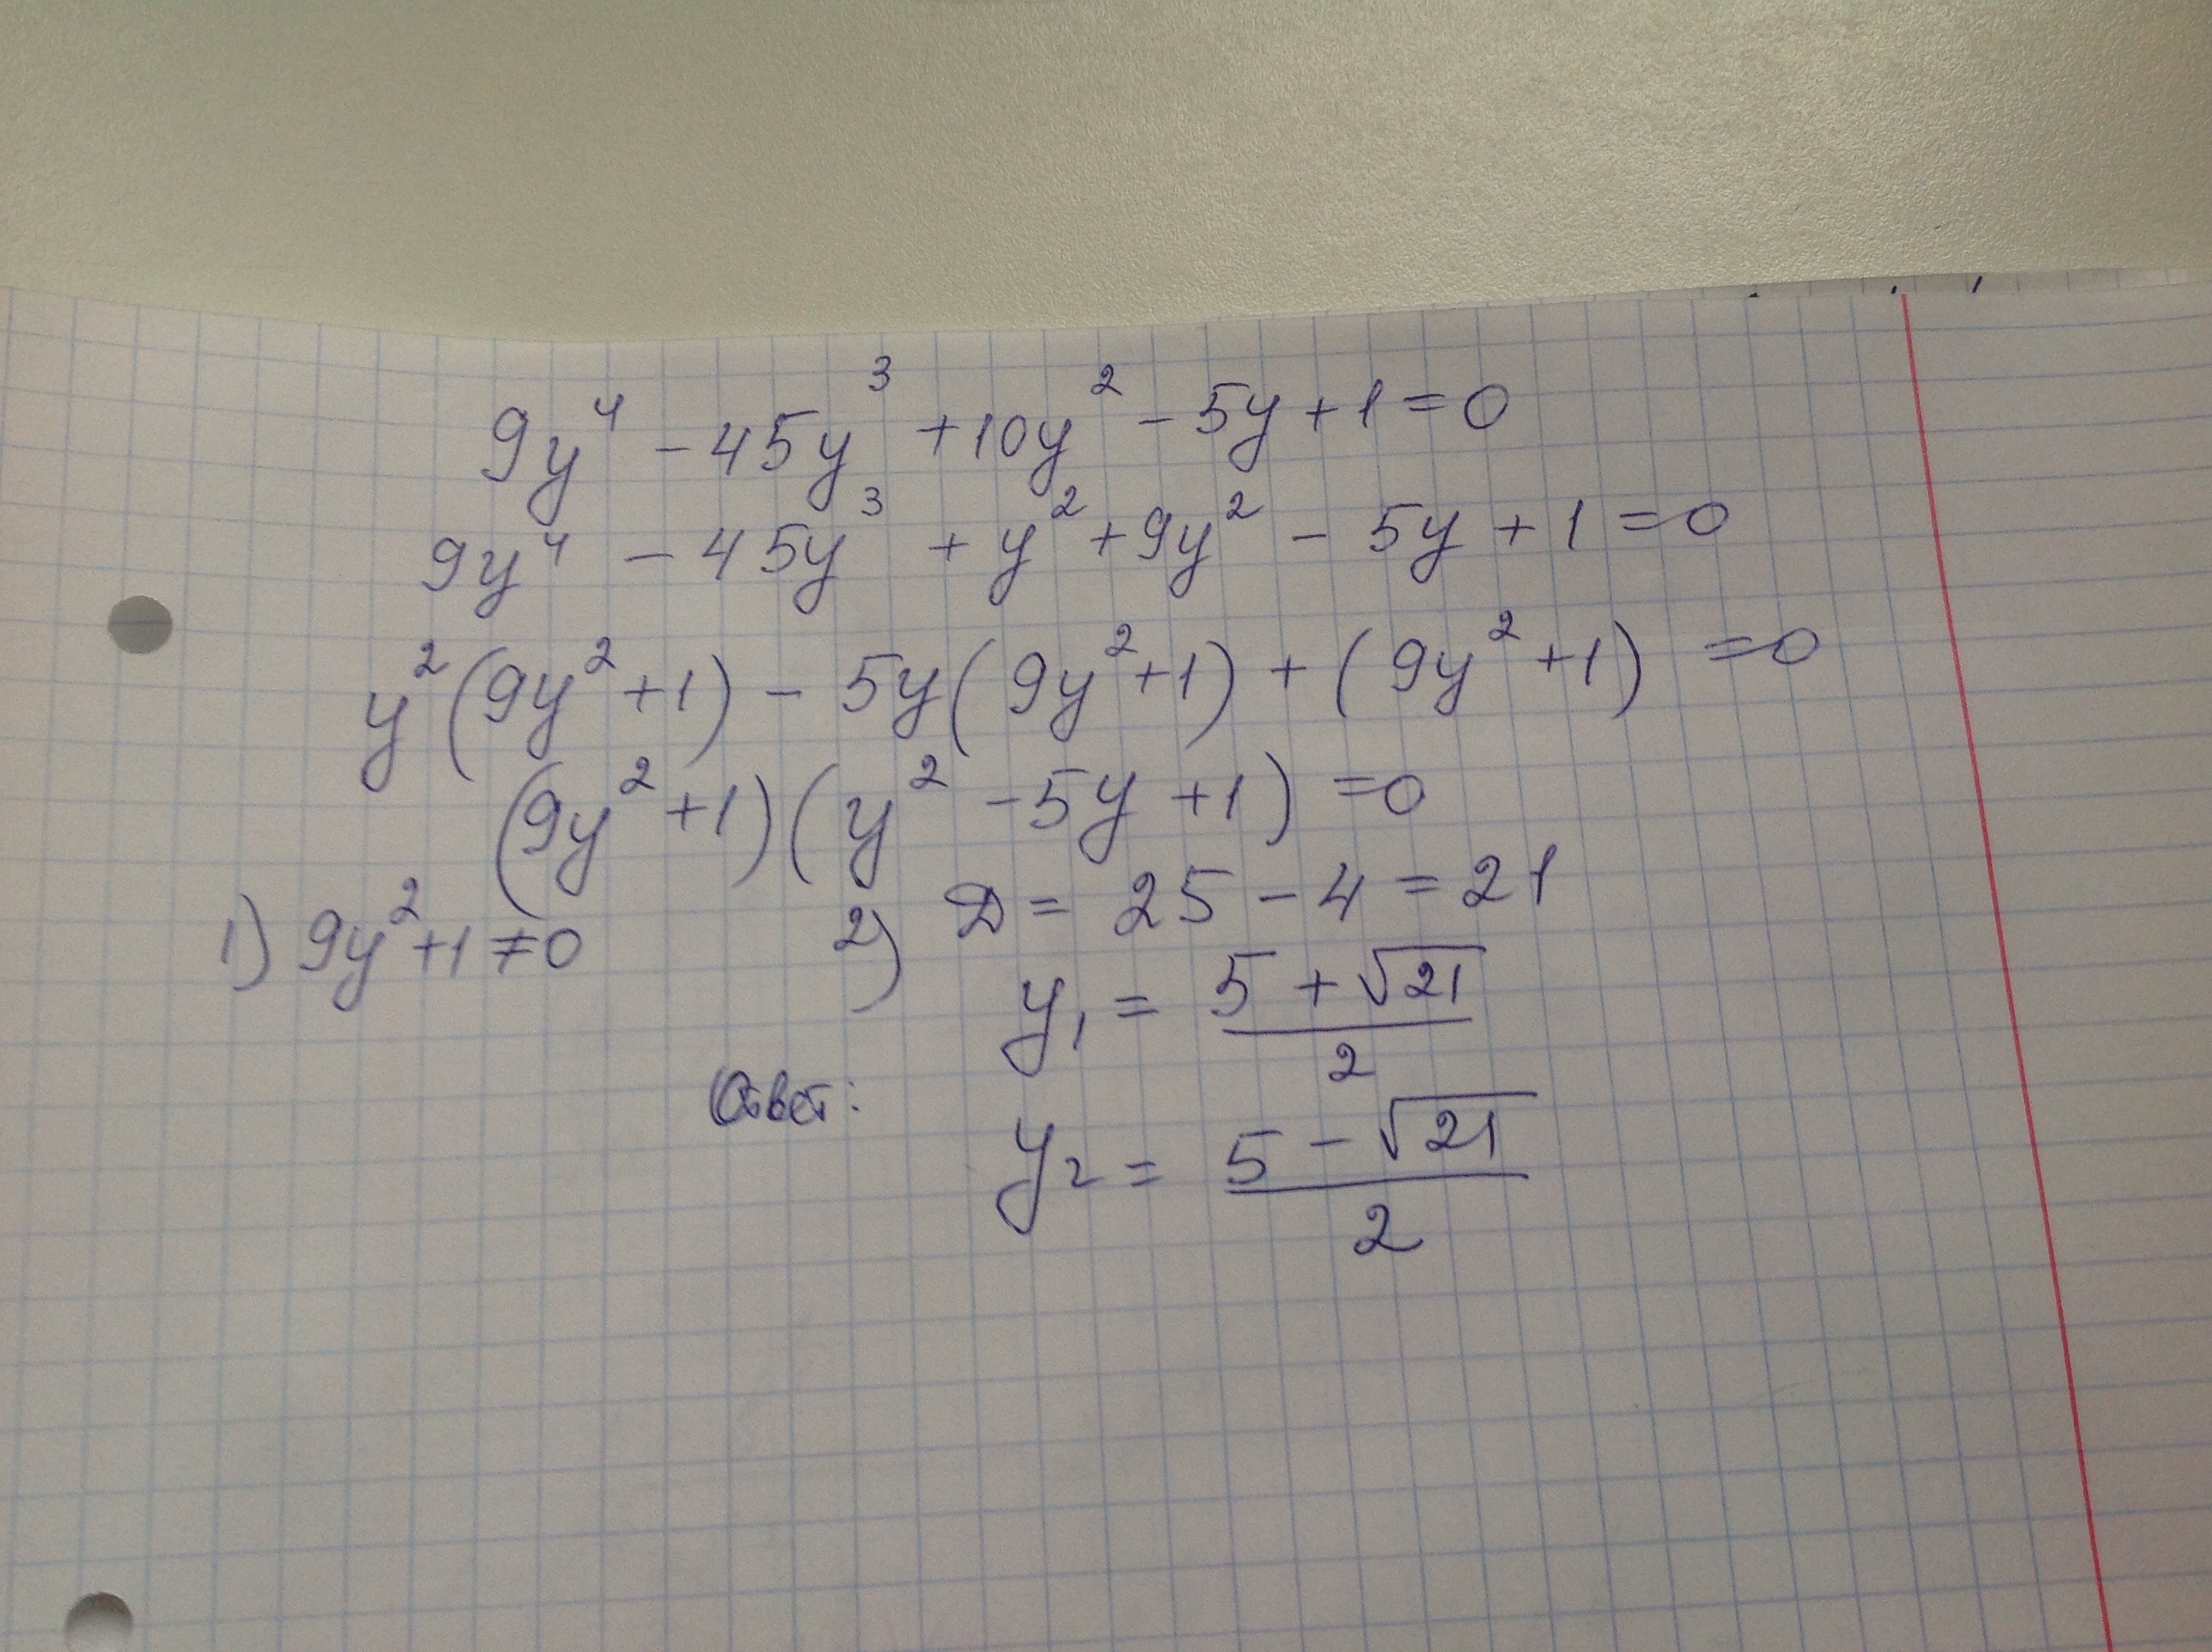 9y⁴ - 45y³ + 10y² - 5y + 1 = 0
9y⁴ - 45y³ + y² + 9y² - 5y + 1 = 0
y²(9y² + 1) - 5y(9y² + 1) + (9y² + 1) = 0
(9y² + 1)(y² - 5y + 1) = 0
1) 9y² + 1 ≠ 0
2) D = 25 - 4 = 21
y₁ = (5 + √21)/2
Ответ:
y₂ = (5 - √21)/2